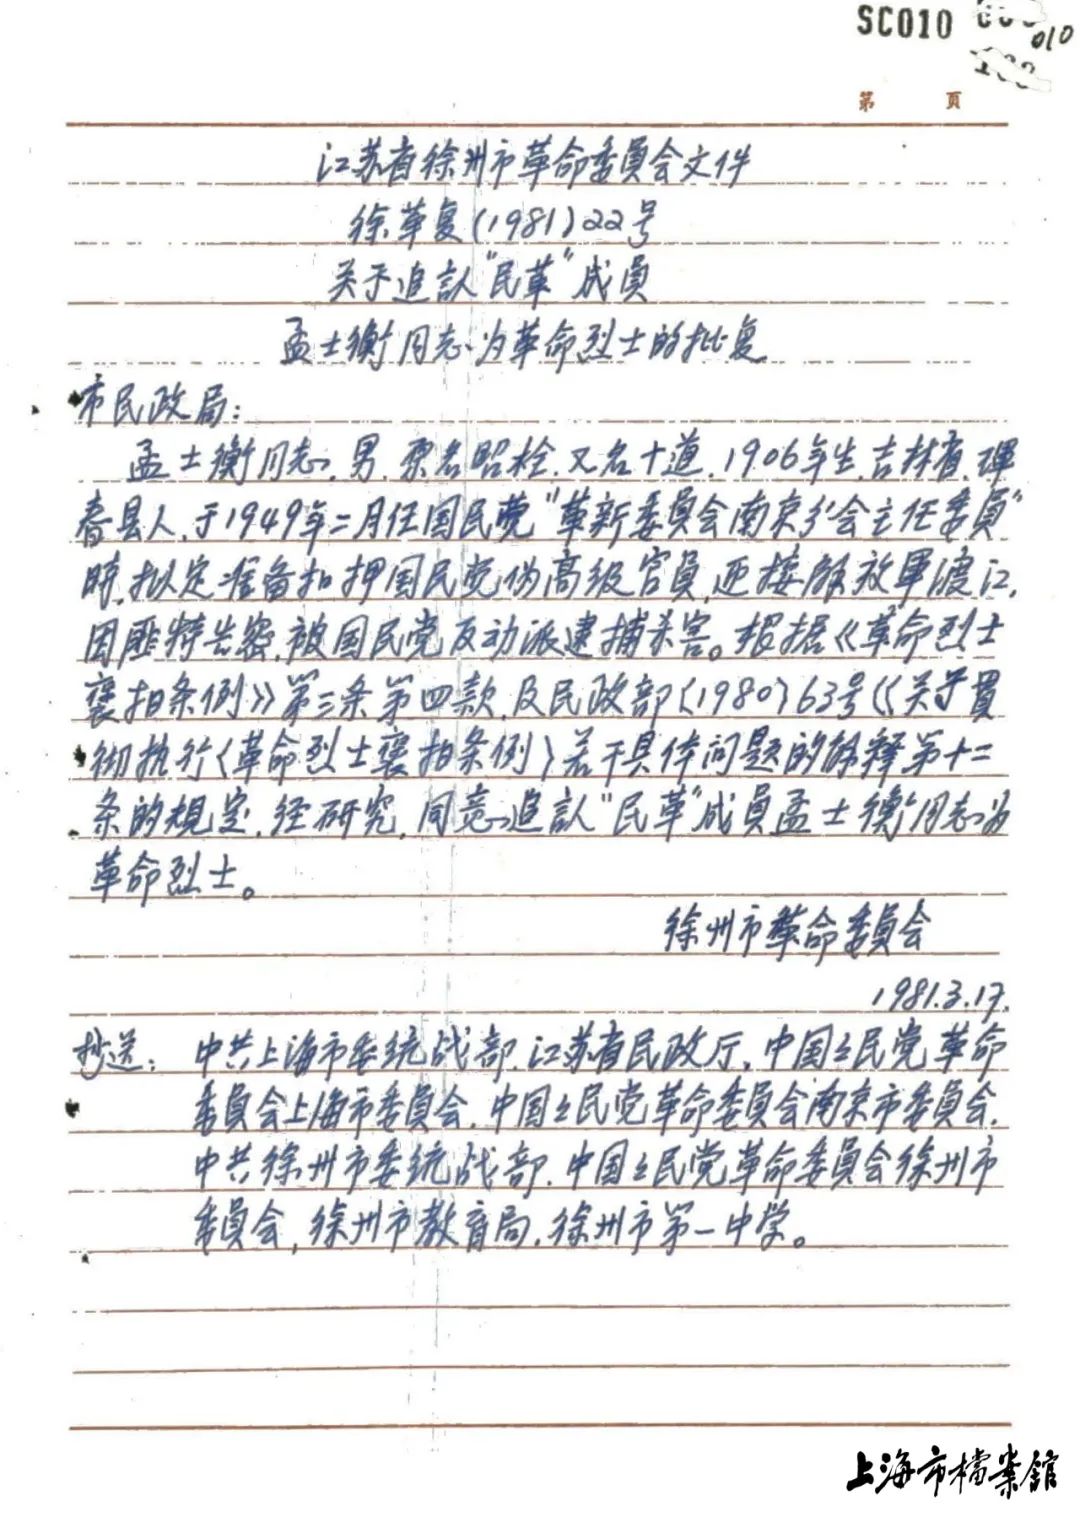 SC010
010
第 頁
江苏省徐州市革命委員会文件
徐革复(1981)22号
关于追認"民革"成員
孟士衡同志为革命烈士的批复
市民政局:
孟士衡同志,男,原名昭栓,又名十道,1906年生,吉林省,琿
春县人,于1949年二月任国民党"革新委員会南京分会主任委員"
時,拟定准备扣押国民党伪高级官員,迎接解放軍渡江,
因匪特告密,被国民党反动派逮捕杀害。根据《革命烈士
褒扬条例》第三条第四款,及民政部(1980)63号《关于貫
彻执行〈革命烈士褒扬条例〉若干具体问题的解释第十二
条的規定,经研究,同意追認"民革"成員孟士衡同志为
革命烈士。
徐州市革命委員会
1981.3.17.
抄送:中共上海市委统战部,江苏省民政厅,中国国民党革命
委員会上海市委員会,中国国民党革命委員会南京市委員会,
中共徐州市委统战部,中国国民党革命委員会徐州市
委員会,徐州市教育局,徐州市第一中学。
上海市檔案館